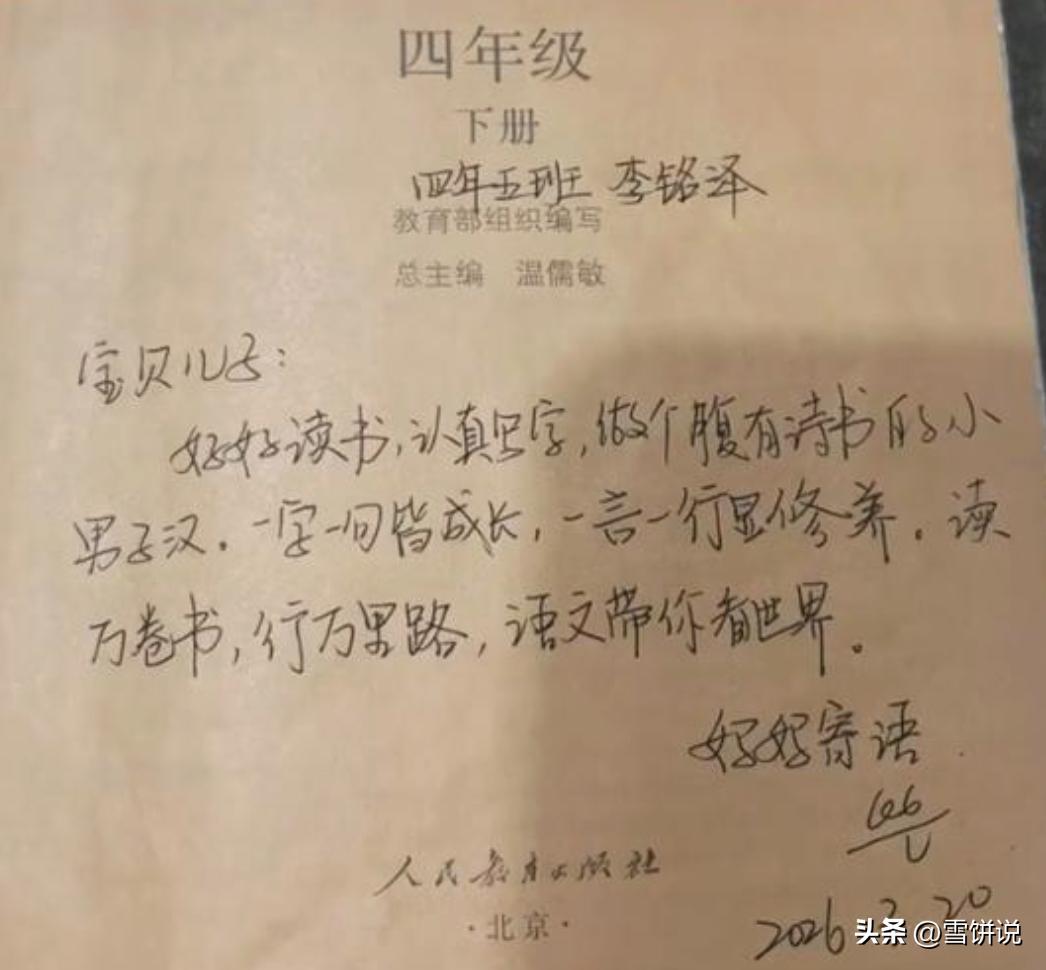 四年级
下册
四年五班 李铭泽
教育部组织编写
总主编 温儒敏
宝贝儿子:
好好读书,认真识字,做个腹有诗书的小
男子汉。一字一句皆成长,一言一行显修养。读
万卷书,行万里路,语文带你看世界。
妈妈寄语
2026 2 20
人民教育出版社
·北京·
头条 @雪饼说